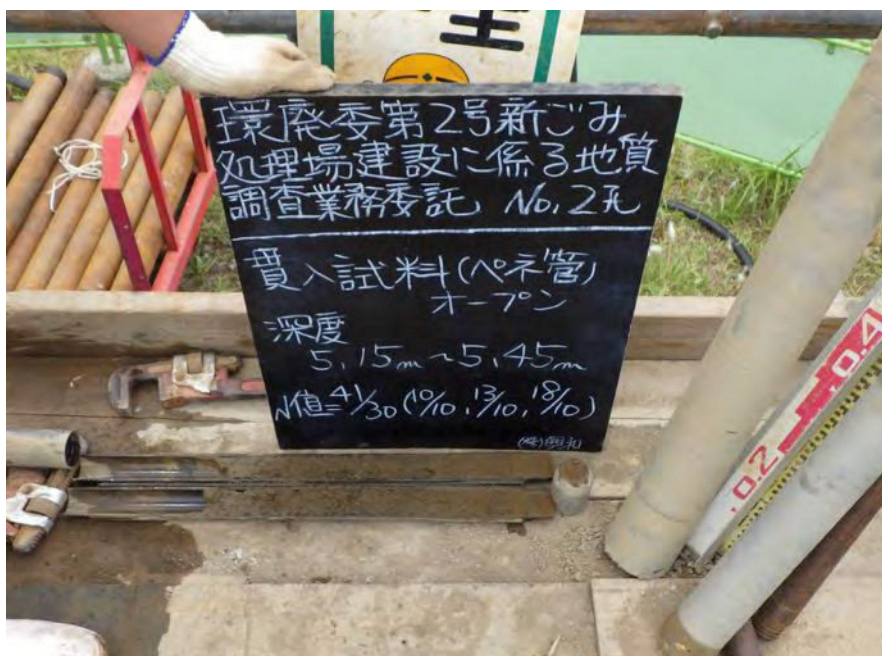 環廃委第2号新ごみ
処理場建設に係る地質
調査業務委託 No.2孔
貫入試料(ペネ管)
オープン
深度
5.15m~5.45m
N値=41/30(10/10,13/10,18/10)
(株)興和
0.4
0.2